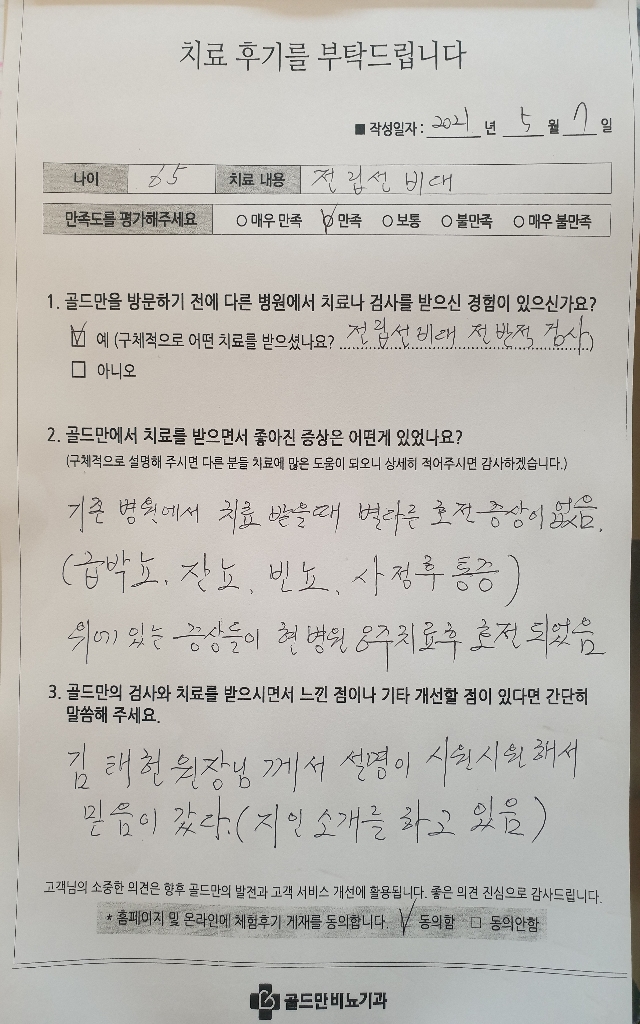 치료 후기를 부탁드립니다
■ 작성일자 : 2021 년 5 월 7 일
나이 65 치료 내용 전립선 비대
만족도를 평가해주세요 ○ 매우 만족 ○ 만족 ○ 보통 ○ 불만족 ○ 매우 불만족
1. 골드만을 방문하기 전에 다른 병원에서 치료나 검사를 받으신 경험이 있으신가요?
☑ 예 (구체적으로 어떤 치료를 받으셨나요? 전립선비대 전반적 검사)
□ 아니오
2. 골드만에서 치료를 받으면서 좋아진 증상은 어떤게 있었나요?
(구체적으로 설명해 주시면 다른 분들 치료에 많은 도움이 되오니 상세히 적어주시면 감사하겠습니다.)
기존 병원에서 치료 받을때 별다른 호전 증상이 없음.
(급박뇨. 잔뇨. 빈뇨. 사정후 통증)
위에 있는 증상들이 현 병원 8주치료후 호전 되었음
3. 골드만의 검사와 치료를 받으시면서 느낀 점이나 기타 개선할 점이 있다면 간단히
말씀해 주세요.
김태헌 원장님 께서 설명이 시원시원해서
믿음이 갔다. (지인 소개를 하고 있음)
고객님의 소중한 의견은 향후 골드만의 발전과 고객 서비스 개선에 활용됩니다. 좋은 의견 진심으로 감사드립니다.
* 홈페이지 및 온라인에 체험후기 게재를 동의합니다. ☑ 동의함 □ 동의안함
골드만비뇨기과